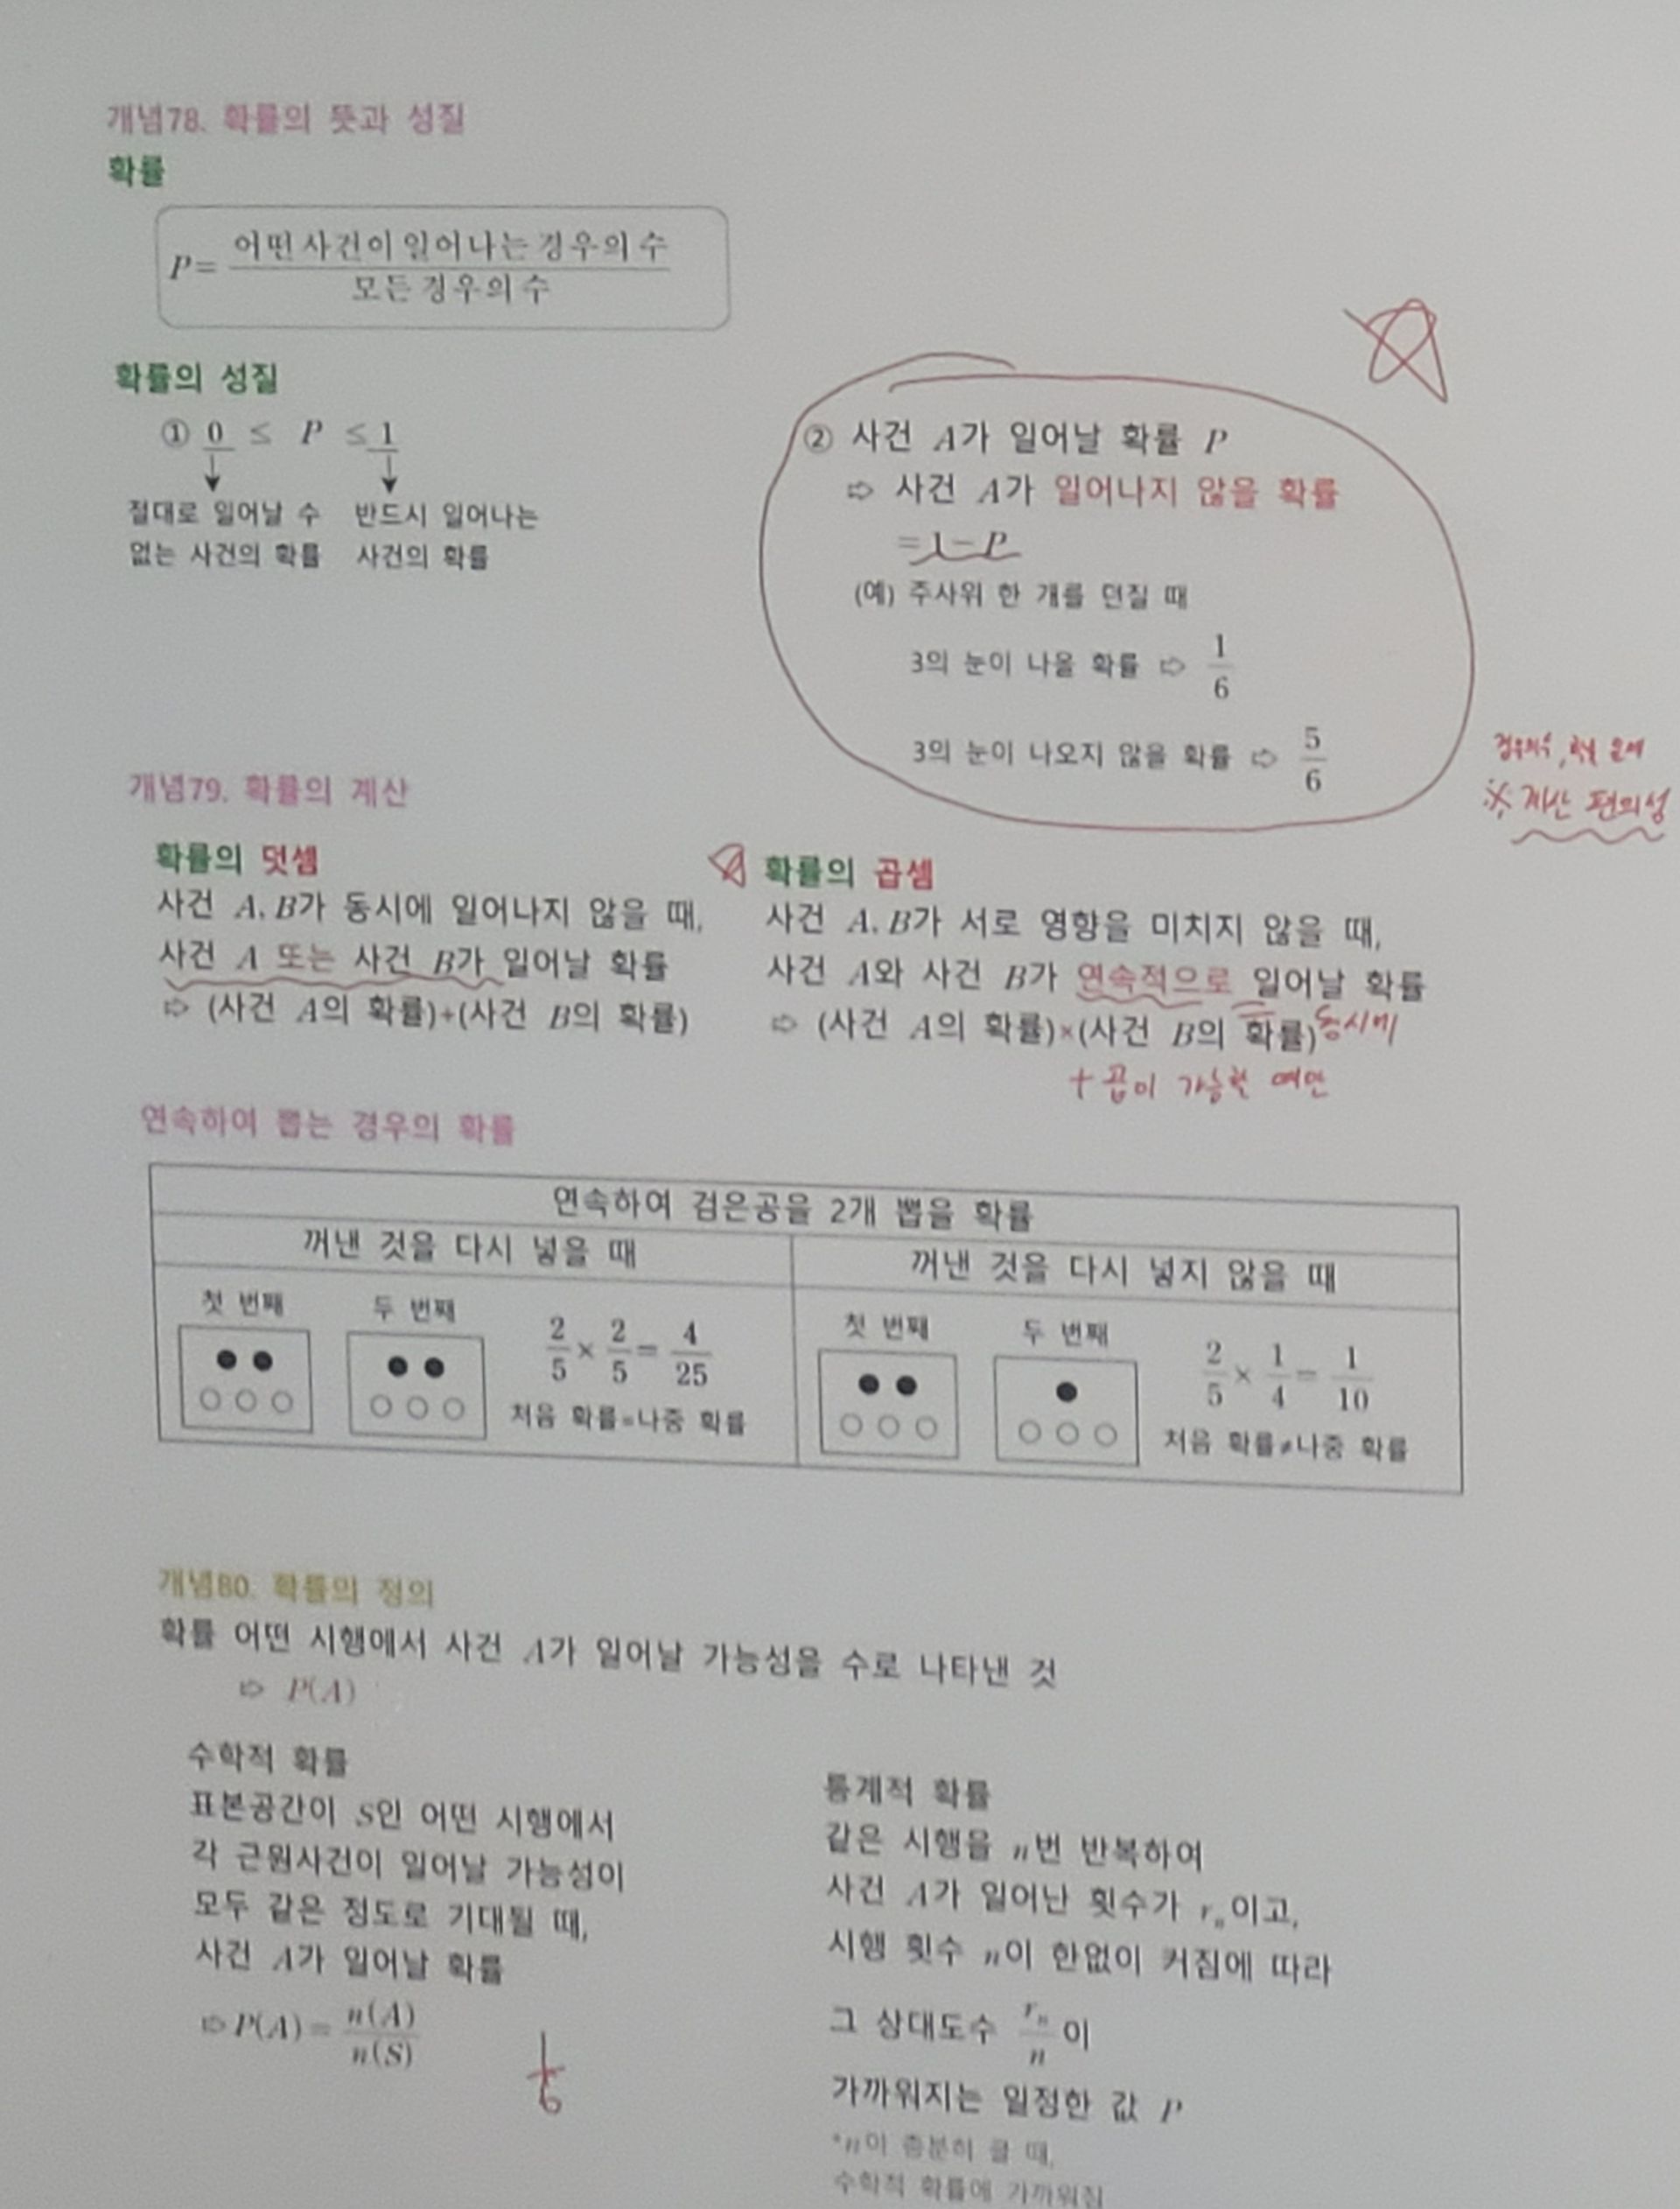 개념78. 확률의 뜻과 성질
확률
P= 어떤 사건이 일어나는 경우의 수
모든 경우의 수
확률의 성질
① 0 ≤ P ≤ 1
절대로 일어날 수 없는 사건의 확률
반드시 일어나는 사건의 확률
② 사건 A가 일어날 확률 P
⇨ 사건 A가 일어나지 않을 확률
=1-P
(예) 주사위 한 개를 던질 때
3의 눈이 나올 확률 ⇨ 1/6
3의 눈이 나오지 않을 확률 ⇨ 5/6
※ 계산 편의성
개념79. 확률의 계산
확률의 덧셈
사건 A, B가 동시에 일어나지 않을 때,
사건 A 또는 사건 B가 일어날 확률
⇨ (사건 A의 확률)+(사건 B의 확률)
확률의 곱셈
사건 A, B가 서로 영향을 미치지 않을 때,
사건 A와 사건 B가 연속적으로 일어날 확률
⇨ (사건 A의 확률)×(사건 B의 확률)
동시에
+ 곱이 가능할
연속하여 뽑는 경우의 확률
연속하여 검은공을 2개 뽑을 확률
꺼낸 것을 다시 넣을 때
첫 번째 두 번째
2/5 × 2/5 = 4/25
처음 확률=나중 확률
꺼낸 것을 다시 넣지 않을 때
첫 번째 두 번째
2/5 × 1/4 = 1/10
처음 확률≠나중 확률
개념80. 확률의 정의
확률 어떤 시행에서 사건 A가 일어날 가능성을 수로 나타낸 것
⇨ P(A)
수학적 확률
표본공간이 S인 어떤 시행에서
각 근원사건이 일어날 가능성이
모두 같은 정도로 기대될 때,
사건 A가 일어날 확률
⇨P(A)= n(A)/n(S)
1/6
통계적 확률
같은 시행을 n번 반복하여
사건 A가 일어난 횟수가 rₙ이고,
시행 횟수 n이 한없이 커짐에 따라
그 상대도수 rₙ/n 이
가까워지는 일정한 값 P
*n이 충분히 클 때,
수학적 확률에 가까워짐